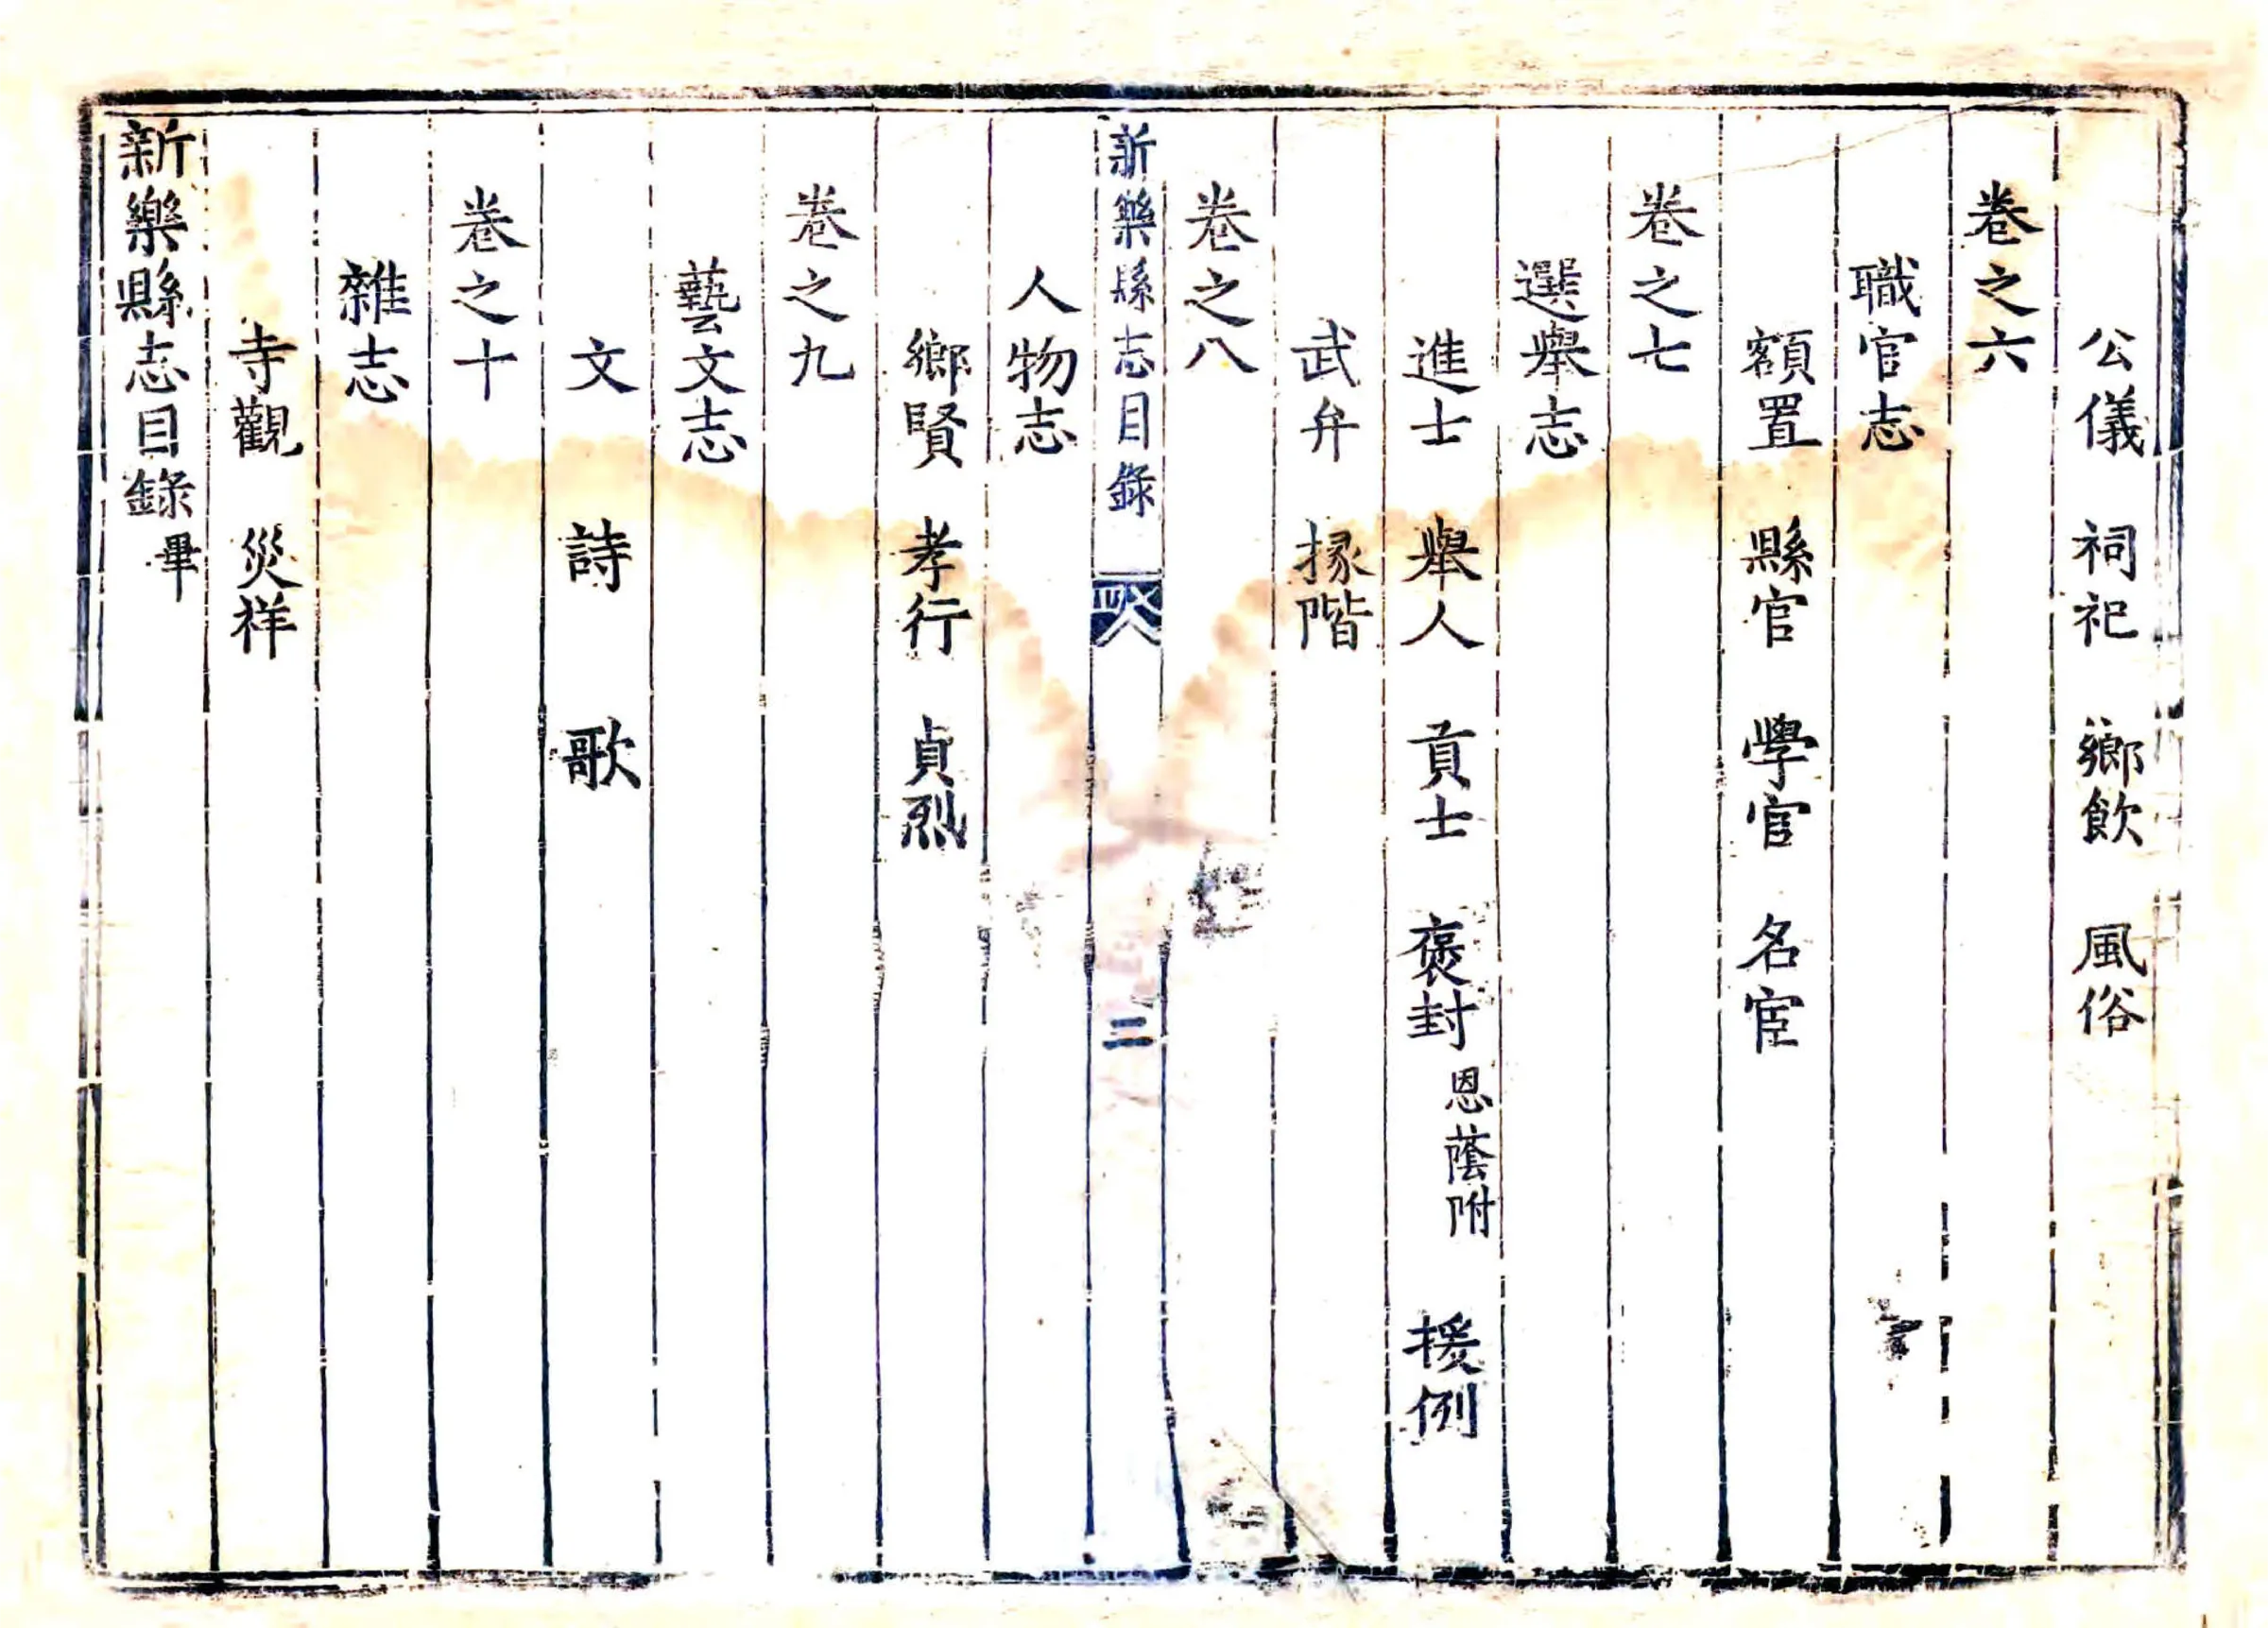 公儀　祠祀　鄉飲　風俗
卷之六
職官志
額置　縣官　學官　名宦
卷之七
選舉志
進士　舉人　貢士　褒封 恩蔭附　援例
武弁　掾階
卷之八
新樂縣志目錄　二
人物志
鄉賢　孝行　貞烈
卷之九
藝文志
文　詩　歌
卷之十
雜志
寺觀　災祥
新樂縣志目錄 畢